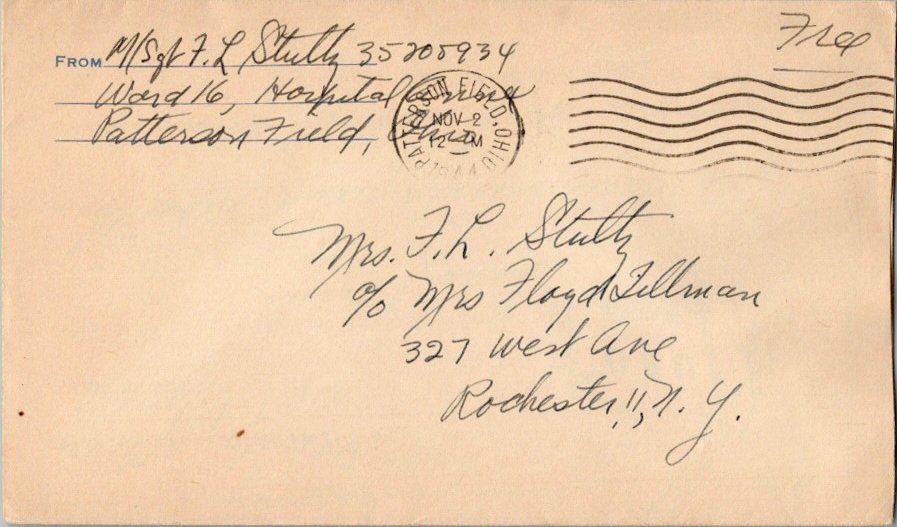 Free
FROM M/Sgt F. L Stultz 35205934
Ward 16, Hospital
Patterson Field, Ohio
PATTERSON FIELD, OHIO
NOV 2
12 M
Mrs. F. L. Stultz
c/o Mrs Floyd Tillman
327 West Ave
Rochester, 11, N. Y.